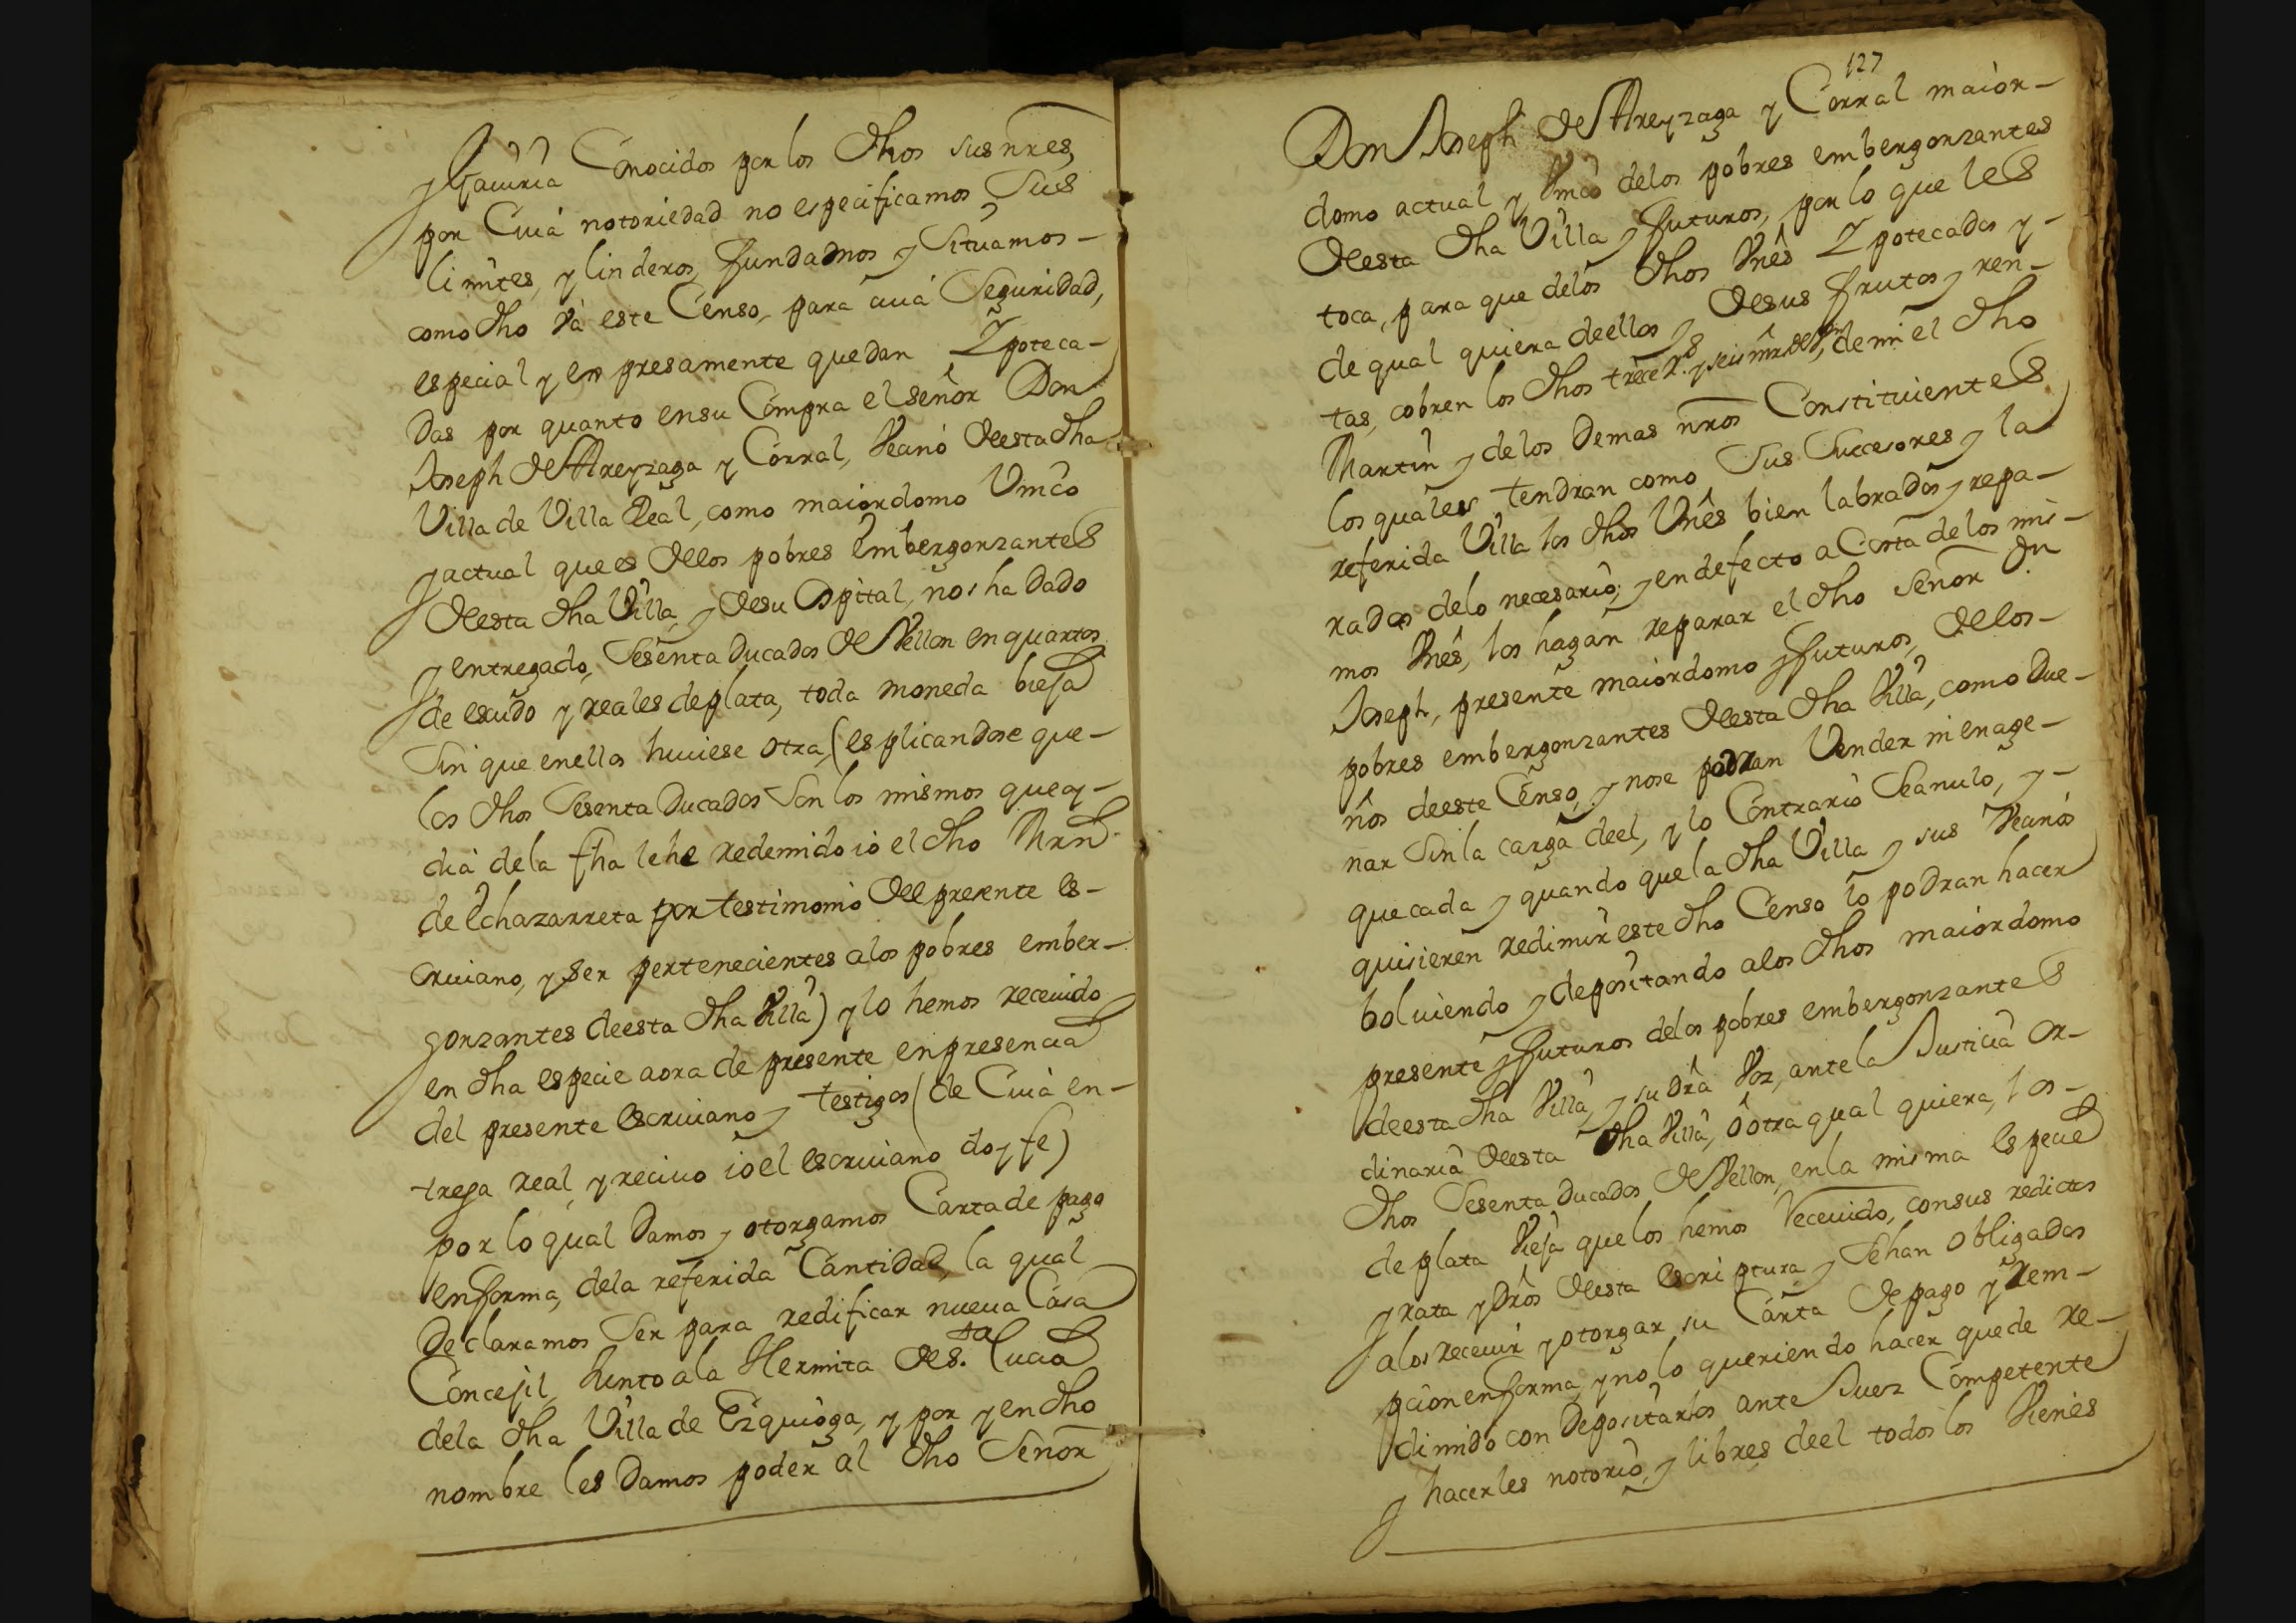 y Gaviria Conocidos por los dhos sus nres,
por Cuia notoriedad no especificamos Sus
limites, y linderos, fundadmos y Situamos -
como dho va este Censo, para cuia Seguridad,
especial y expresamente quedan Ypoteca-
das por quanto en su Compra el señor Don
Joseph de Areyzaga y Corral, Vecino de esta dha
Villa de Villa Real, como maiordomo Vnico
y actual que es de los pobres embergonzantes
de esta dha Villa, y de su Ospital, nos ha dado
y entregado, Sesenta ducados de Vellon en quartos
de escudo y reales de plata, toda moneda bieja
Sin que en ellos huuiese otra, (esplicandose que -
los dhos Sesenta Ducados Son los mismos que oy -
dia de la fha le he redemido io el dho Mrn
de Echazarreta por testimonio del presente es-
criuano, y Ser pertenecientes a los pobres ember-
gonzantes de esta dha Villa) y lo hemos receuido
en dha especie aora de presente en presencia
del presente escriuano y testigos (de Cuia en-
trega real, y reciuo io el escriuano doy fe)
por lo qual Damos y otorgamos Carta de pago
en forma, de la referida Cantidad, la qual
Declaramos Ser para redificar nueua Casa
Concejil, Junto a la Hermita de S.ta Lucia
de la dha Villa de Ezquioga, y por y en dho
nombre les Damos poder al dho Señor
127
Don Joseph de Areyzaga y Corral maior-
domo actual y Vnico de los pobres embergonzantes
de esta dha Villa y futuros, por lo que les
toca, para que de los dhos Vnes Ypotecados y -
de qual quiera de ellos y de sus frutos y ren-
tas, cobren los dhos trece Rs. y seis mrs de Vn, de mi el dho
Martin y de los Demas nros Constituientes
los quales, tendran como Sus Succesores y la
referida Villa los dhos Vnes bien labrados y repa-
rados de lo necesario; y en defecto a Costa de los mis-
mos Vnes, los hagan reparar el dho Señor Dn
Joseph, presente maiordomo y futuros, de los -
pobres embergonzantes de esta dha Villa, como Due-
ños de este Censo, y no se podran Vender ni enage-
nar Sin la carga de el, y lo Contrario Sea nulo, y -
que cada y quando que la dha Villa y sus Vecinos
quisieren redimir este dho Censo lo podran hacer
bolviendo y depositando a los dhos maiordomo
presente y futuros de los pobres embergonzantes
de esta dha Villa, y su dra Voz, ante la Justicia or-
dinaria de esta dha Villa, ô otra qual quiera, los -
dhos Sesenta Ducados de Vellon, en la misma especie
de plata Vieja que los hemos receuido, con sus reditos
y rata y dros de esta escriptura y Sehan obligados
a los receuir y otorgar su Carta de pago y rem-
pcion en forma, y no lo queriendo hacer quede re-
dimido con Depositarlos ante Juez Competente
y hacerles notorio, y libres de el todos los Vienes